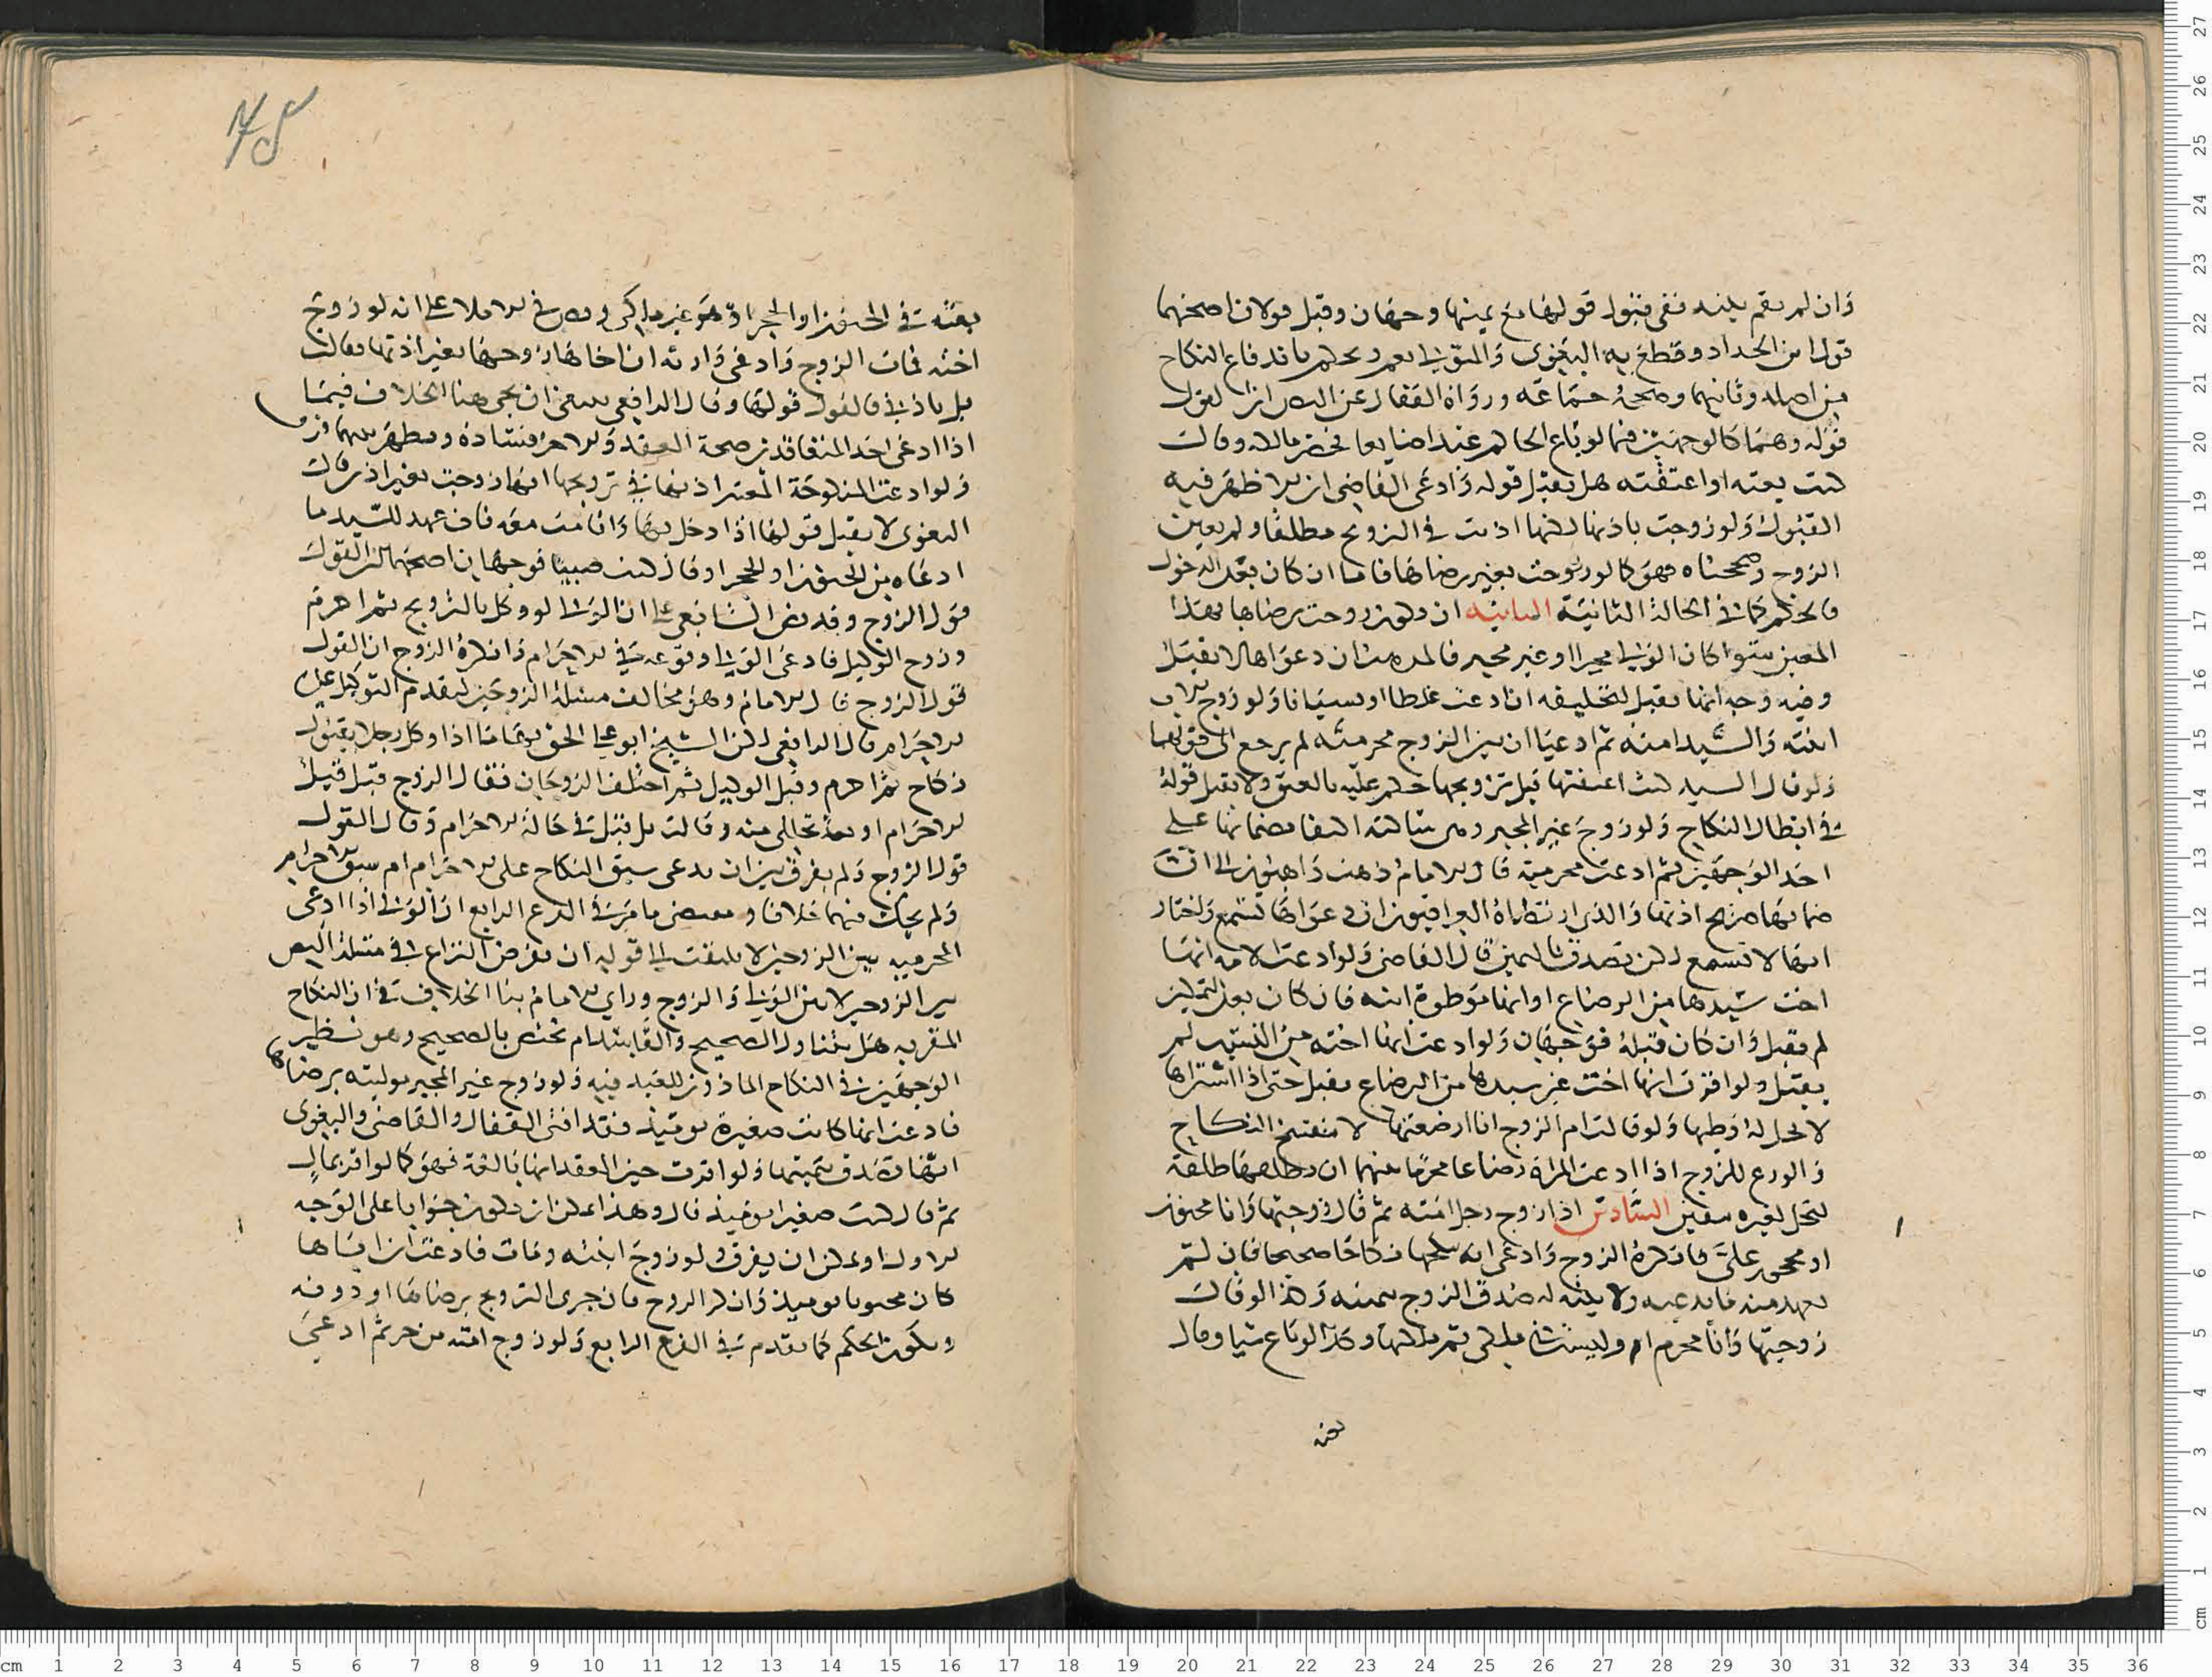 وان لم يقم بينة ففي قبول قولها مع يمينها وجهان وقيل قولان اصحهما
قول ابن الحداد وقطع به البغوي والمتولي نعم ويحكم باندفاع النكاح
من اصله وثانيهما وصححه جماعة ورواه القفال عن النص ان القول
قوله وهما كالوجهين فيما لو باع الحاكم عبدا ضايعا فحضر مالكه وقال
كنت بعته او اعتقته هل يقبل قوله وادعى القاضي ان الاظهر فيه
القبول ولو زوجت باذنها لكنها اذنت في التزويج مطلقا ولم يعين
الزوج وصححناه فهو كما لو زوجت بغير رضاها فاما ان كان بعد الدخول
فالحكم كما في الحالة الثانية الثانية ان تكون زوجت برضاها بهذا
المعين سوا كان الولي مجبرا او غير مجبر فالمذهب ان دعواها لا تقبل
وفيه وجه انها تقبل لتحليفه ان ادعت غلطا او نسيانا ولو زوج الاب
ابنته والسيد امته ثم ادعيا ان بين الزوج محرمية لم يرجع الى قولهما
ولو قال السيد كنت اعتقتها قبل تزويجها حكم عليه بالعتق ولا يقبل قوله
في ابطال النكاح ولو زوج غير المجبر ومن شاكته اكتفا بصماتها على
احد الوجهين ثم ادعت محرمية قال الامام ذهب ذاهبون الى ان
صماتها صريح اذنها والذي ارتضاه العراقيون ان دعواها تسمع واختار
انها لا تسمع لكن تصدق باليمين قال القاضي ولو ادعت الامة انها
اخت سيدها من الرضاع او انها موطوة ابنه فان كان بعد التمكين
لم يقبل وان كان قبله فوجهان ولو ادعت انها اخته من النسب لم
يقبل ولو اقرت انها اخت غير سيدها من الرضاع يقبل حتى اذا اشتراها
لا يحل له وطيها ولو قالت ام الزوج انا ارضعتها لا ينفسخ النكاح
والورع للزوج اذا ادعت المراة رضاعا محرما بينهما ان يطلقها طلقة
لتحل لغيره بيقين السادس اذا زوج رجل امته ثم قال زوجتها وانا مجنون
او محجور علي فانكره الزوج وادعى انه نكحها نكاحا صحيحا فان لم
يعهد منه ما يدعيه ولا بينة له صدق الزوج بيمينه وكذا لو قال
زوجتها وانا محرم او وليست في ملكي ثم ملكتها وكذا لو باع شيا وقال
بعته

بعته في الحنفزاو الحجر او هو غير ملكي ونص في الاملا على انه لو زوج
اخته فمات الزوج وادعى وارثه ان اخاها زوجها بغير اذنها فقالت
بل باذني فالقول قولها وقال الرافعي ينبغي ان يجي هنا الخلاف فيما
اذا ادعى احد المتعاقدين صحة العقد والاخر فساده وسيظهر بينهما فرق
ولو ادعت المنكوحة المعتبر اذنها في تزويجها انها زوجت بغير اذن قال
البغوي لا يقبل قولها اذا دخل بها واقامت معه فان عهد للسيد ما
ادعاه من الجنون او الحجر او قال كنت صبيا فوجهان اصحهما ان القول
قول الزوج وقد نص الشافعي على ان الولي لو وكل بالتزويج ثم احرم
وزوج الوكيل فادعى الولي وقوعه في الاحرام وانكره الزوج ان القول
قول الزوج قال الامام وهو مخالف مسئلة الزوجين لتقدم التوكيل على
الاحرام قال الرافعي لكن الشيخ ابو علي الحق بها ما اذا وكل رجلا بقبول
نكاح ثم احرم وقبل الوكيل ثم اختلف الزوجان فقال الزوج قبل قبل
الاحرام او بعد تحللي منه وقالت بل قبل في حالة الاحرام وقال القول
قول الزوج ولم يفرق بين ان يدعى سبق النكاح على الاحرام ام سبق الاحرام
ولم يحك فيهما خلافا ومقتضى ما مر في الفرع الرابع ان الولي اذا ادعى
المحرمية بين الزوجين لا يلتفت الى قوله ان يفرض النزاع في مسئلة النص
بين الزوجين لا بين الولي والزوج وراي الامام بنا الخلاف في ان النكاح
المقر به هل يتناول الصحيح والفاسد ام تختص بالصحيح وهو نظير
الوجهين في النكاح الماذون للعبد فيه ولو زوج غير المجبر موليته برضاها
فادعت انها كانت صغيرة يومئذ فقد افتى القفال والقاضي والبغوي
انها تصدق بيمينها ولو اقرت حين العقد انها بالغة فهو كما لو اقر بمال
ثم قال كنت صغيرا يومئذ قال وهذا يمكن ان يكون جوابا على الوجه
الاول او يمكن ان يفرق ولو زوج ابنته ومات فادعت ان اباها
كان مجنونا يوميذ وانكر الزوج فان جرى التزويج برضاها او دونه
ويكون الحكم كما تقدم في الفرع الرابع ولو زوج امته من حر ثم ادعى